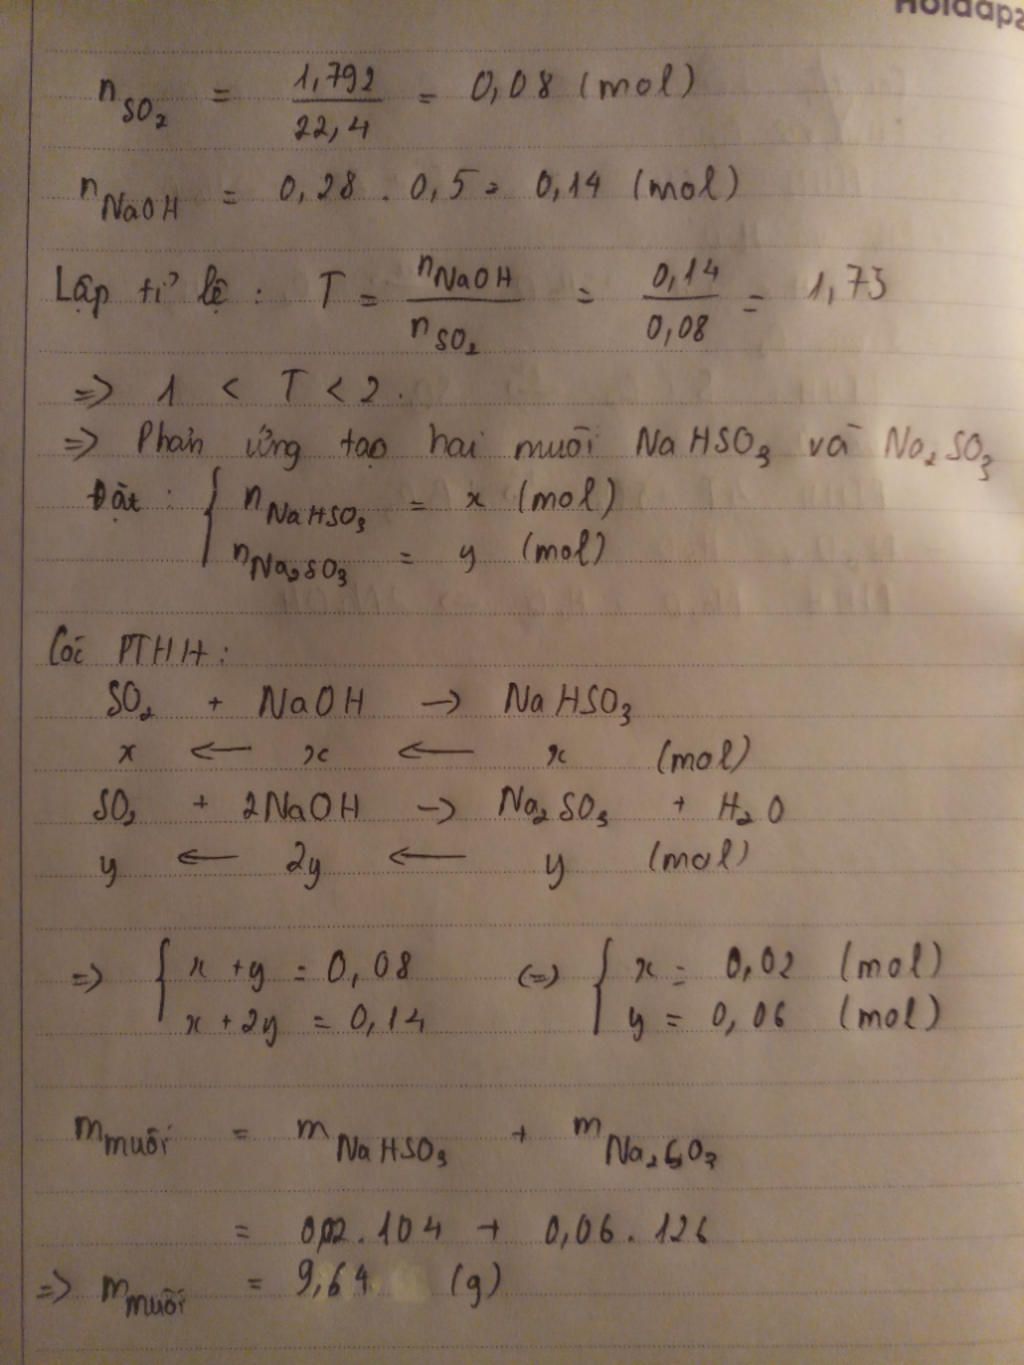 Hoidap2
n_SO₂ = 1,792/22,4 = 0,08 (mol)
n_NaOH = 0,28 . 0,5 = 0,14 (mol)
Lập tỉ lệ : T = n_NaOH/n_SO₂ = 0,14/0,08 = 1,75
=> 1 < T < 2.
=> Phản ứng tạo hai muối NaHSO₃ và Na₂SO₃
Đặt : { n_NaHSO₃ = x (mol)
n_Na₂SO₃ = y (mol)
Các PTHH :
SO₂ + NaOH -> NaHSO₃
x <- x <- x (mol)
SO₂ + 2NaOH -> Na₂SO₃ + H₂O
y <- 2y <- y (mol)
=> { x + y = 0,08 (=) { x = 0,02 (mol)
x + 2y = 0,14 y = 0,06 (mol)
m_muối = m_NaHSO₃ + m_Na₂SO₃
= 0,02 . 104 + 0,06 . 126
=> m_muối = 9,64 (g)